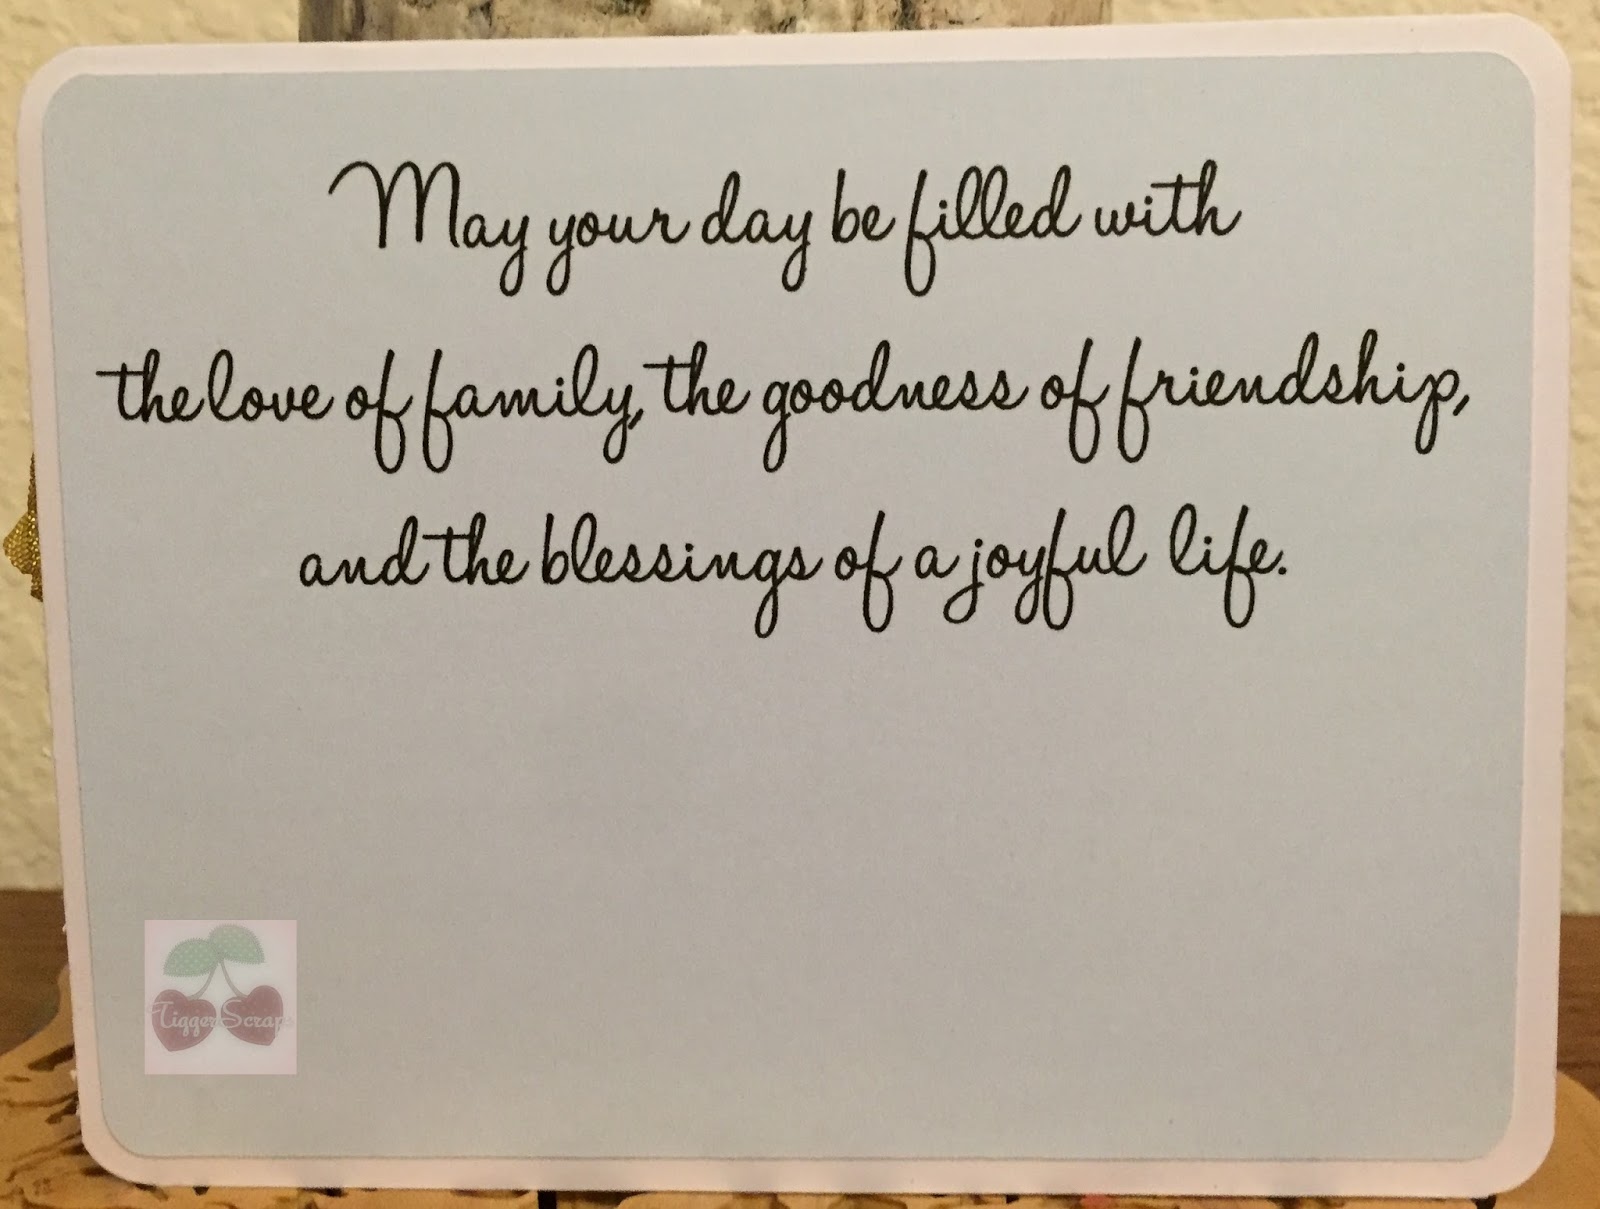 May your day be filled with
the love of family, the goodness of friendship,
and the blessings of a joyful life.
TiggerScraps